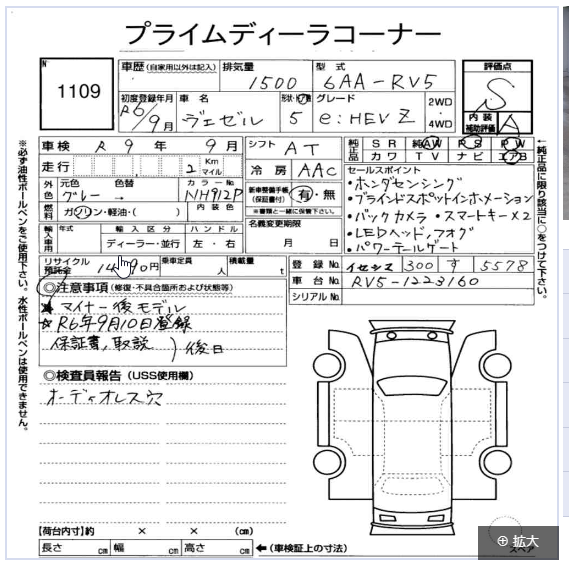 プライムディーラコーナー
No
1109
車歴 (自家用以外は記入)
排気量
1500
型式
6AA-RV5
評価点
S
内装
補助評価
A
初度登録年月
R6/9月
車名
ヴェゼル
形状・ドア数
5
グレード
e:HEV Z
2WD
4WD
車検 R 9 年 9 月
シフト AT
走行 2 Km マイル
冷房 AAC
純正品 SR 純AW PS PW
カワ TV ナビ エアB
外色 元色 色替
グレー →
カラーNo.
NH912P
新車整備手帳 (保証書付) 有・無
※書類と一緒に保管下さい。
燃料 ガソリン・軽油・( )
内装色
名義変更期限
月 日
輸入車用 年式 輸入区分 ハンドル
ディーラー・並行 左・右
セールスポイント
・ホンダセンシング
・ブラインドスポットインホメーション
・バックカメラ ・スマートキー×2
・LEDヘッド,フォグ
・パワーテールゲート
リサイクル預託金 円
乗車定員 人
積載量 t
登録No. 300 す 5578
車台No. RV5-1223160
シリアルNo.
◎注意事項 (修復・不具合箇所および状態等)
★ マイナー後モデル
☆ R6年9月10日登録
保証書、取説 ) 後日
◎検査員報告 (USS使用欄)
オーディオレス穴
【荷台内寸】約 × × (cm)
長さ cm 幅 cm 高さ cm ←(車検証上の寸法)
スペア
拡大
※必ず油性ボールペンをご使用下さい。水性ボールペンは使用できません。
←純正品に限り該当に○をつけて下さい。